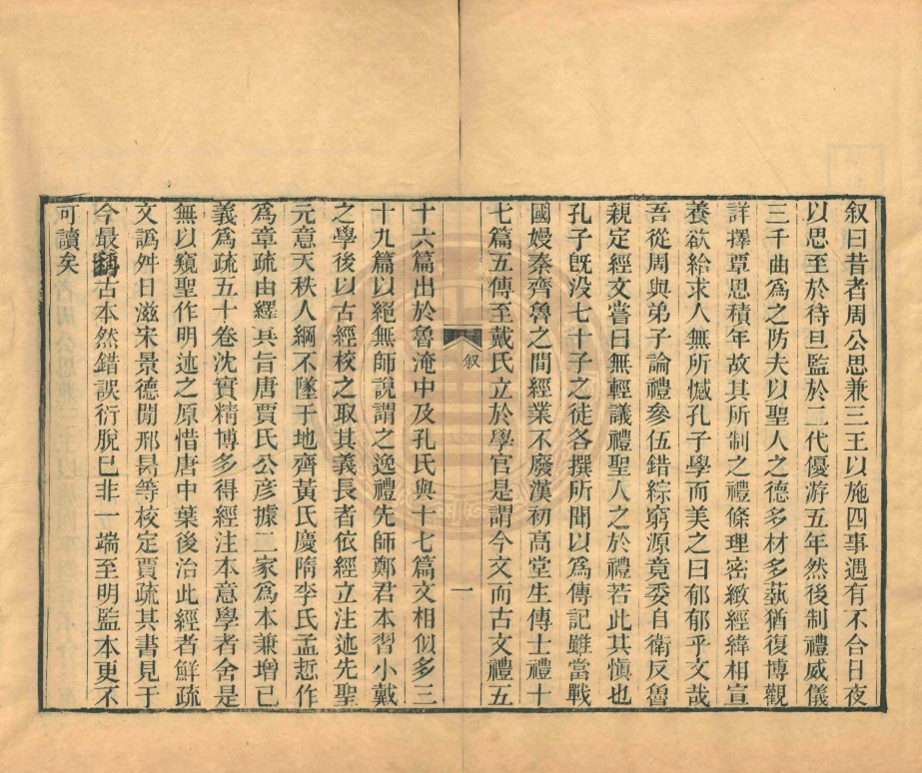 叙曰昔者周公思兼三王以施四事遇有不合日夜
以思至於待旦監於二代優游五年然後制禮威儀
三千曲爲之防夫以聖人之德多材多藝猶復博觀
詳擇覃思積年故其所制之禮條理密緻經緯相宣
養欲給求人無所憾孔子學而美之曰郁郁乎文哉
吾從周與弟子論禮參伍錯綜窮源竟委自衛反魯
親定經文嘗曰無輕議禮聖人之於禮若此其愼也
孔子旣没七十子之徒各撰所聞以爲傳記雖當戰
國嫚秦齊魯之間經業不廢漢初高堂生傳士禮十
七篇五傳至戴氏立於學官是謂今文而古文禮五
叙
一
十六篇出於魯淹中及孔氏與十七篇文相似多三
十九篇以絕無師說謂之逸禮先師鄭君本習小戴
之學後以古經校之取其義長者依經立注述先聖
元意天秩人綱不墜于地齊黃氏慶隋李氏孟悊作
爲章疏由繹其旨唐賈氏公彥據二家爲本兼增已
義爲疏五十卷沈實精博多得經注本意學者舍是
無以窺聖作明述之原惜唐中葉後治此經者鮮疏
文譌舛日滋宋景德閒邢昺等校定賈疏其書見于
今最稱古本然錯誤衍脫已非一端至明監本更不
可讀矣